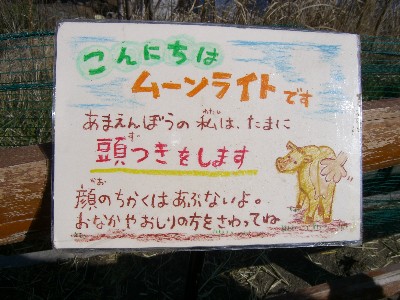 こんにちは
ムーンライトです
あまえんぼうの私は、たまに
頭つきをします
顔のちかくはあぶないよ。
おなかやおしりの方をさわってね